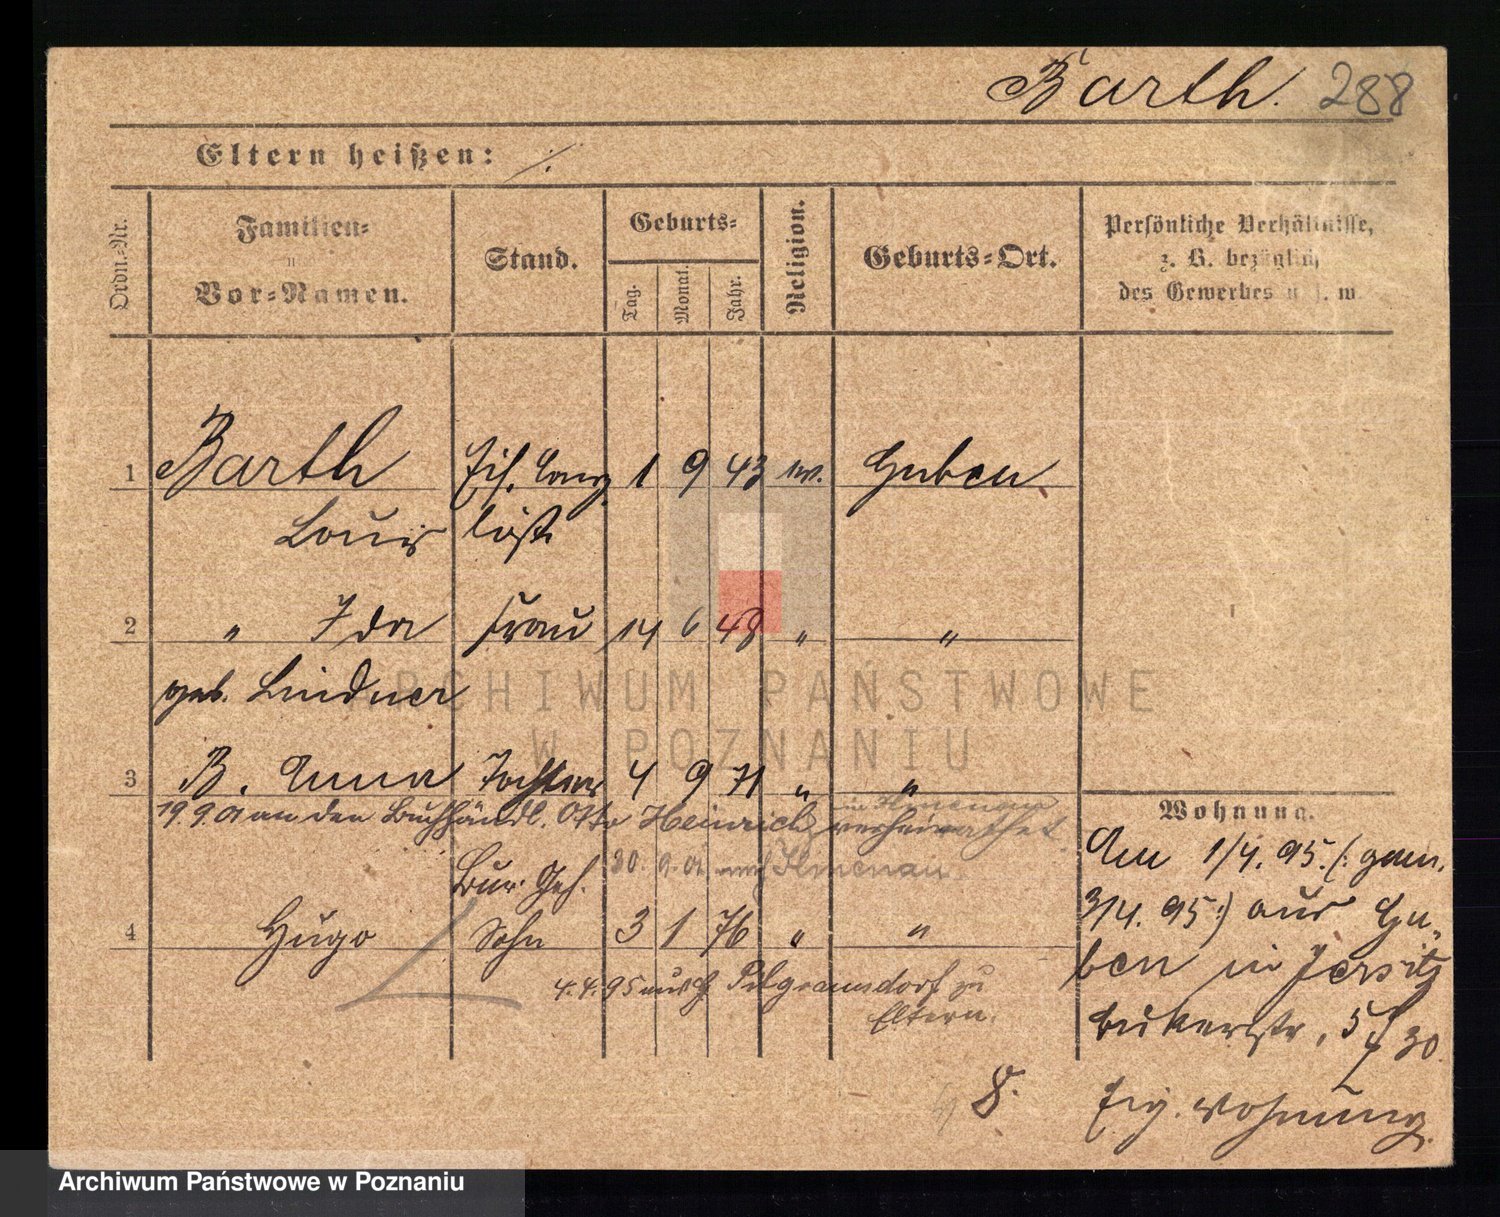 Barth. 288
Eltern heißen: ./.
Ordn.-Nr.
Familien-
u
Vor-Namen.
Stand.
Geburts-
Tag.
Monat.
Jahr.
Religion.
Geburts-Ort.
Persönliche Verhältnisse,
z. B. bezüglich
des Gewerbes u. s. w.
1 Barth 1 9 43 ev. Guben
Louis
2 " Ida Frau 14 6 48 " "
geb. Lindner
3 B. Anna Tochter 4 9 71 " "
19.9.01 an den Buchhändl. Otto Heinrich in Ilmenau verheirathet.
20. 9. 01 nach Ilmenau.
Bur. Geh.
4 Hugo Sohn 3 1 76 " "
4.4.95 nach Pilgramsdorf zu
Eltern.
Wohnung.
Am 1/4. 95. (: gem.
3/4. 95 :) aus Gu-
ben in Jersitz
Bukerstr. 5
30
Eig. Wohnung.
8.
ARCHIWUM PAŃSTWOWE
W POZNANIU
Archiwum Państwowe w Poznaniu